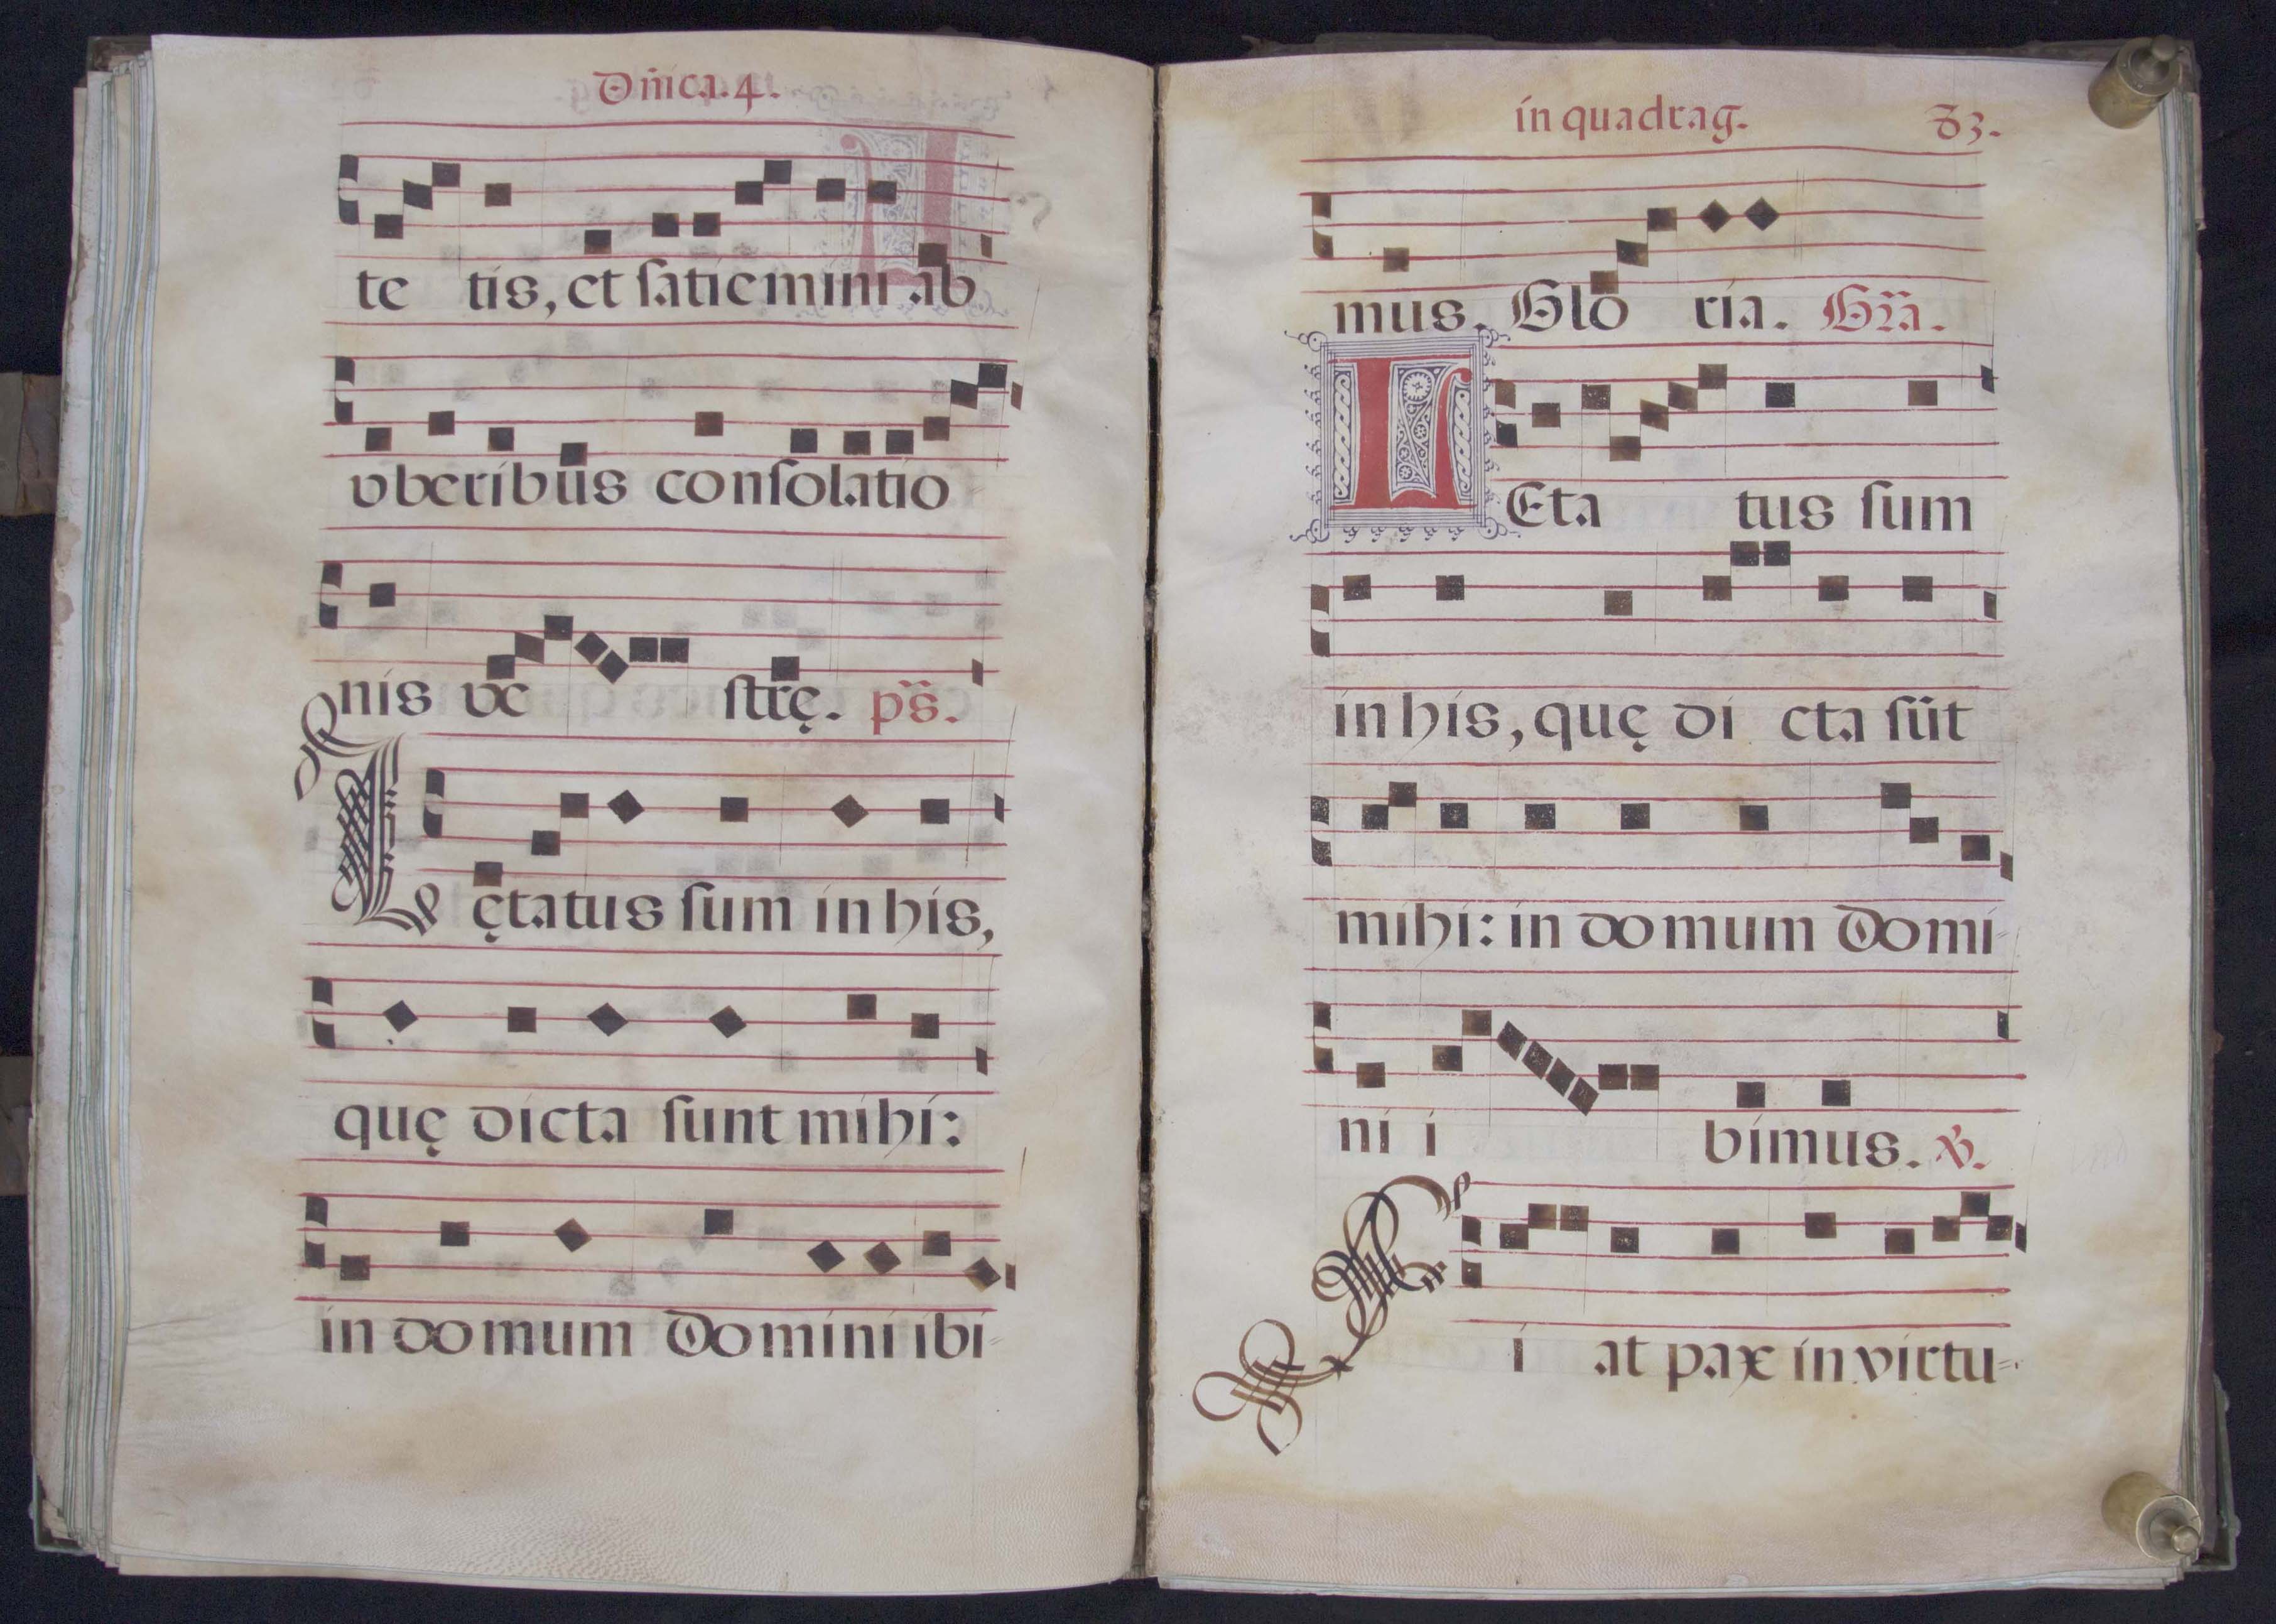 Dñica. 4.
te tis, et ſatiemini ab
vberibus conſolatio
nis ve ſtrę. ps̃.
Lętatus ſum in his,
quę dicta ſunt mihi:
in domum Domini ibi-
in quadrag. 83.
mus. Glo ria. Gr̃a.
LEta tus ſum
in his, quę di cta ſũt
mihi: in domum Domi-
ni i bimus. ℣.
Fi at pax in virtu-